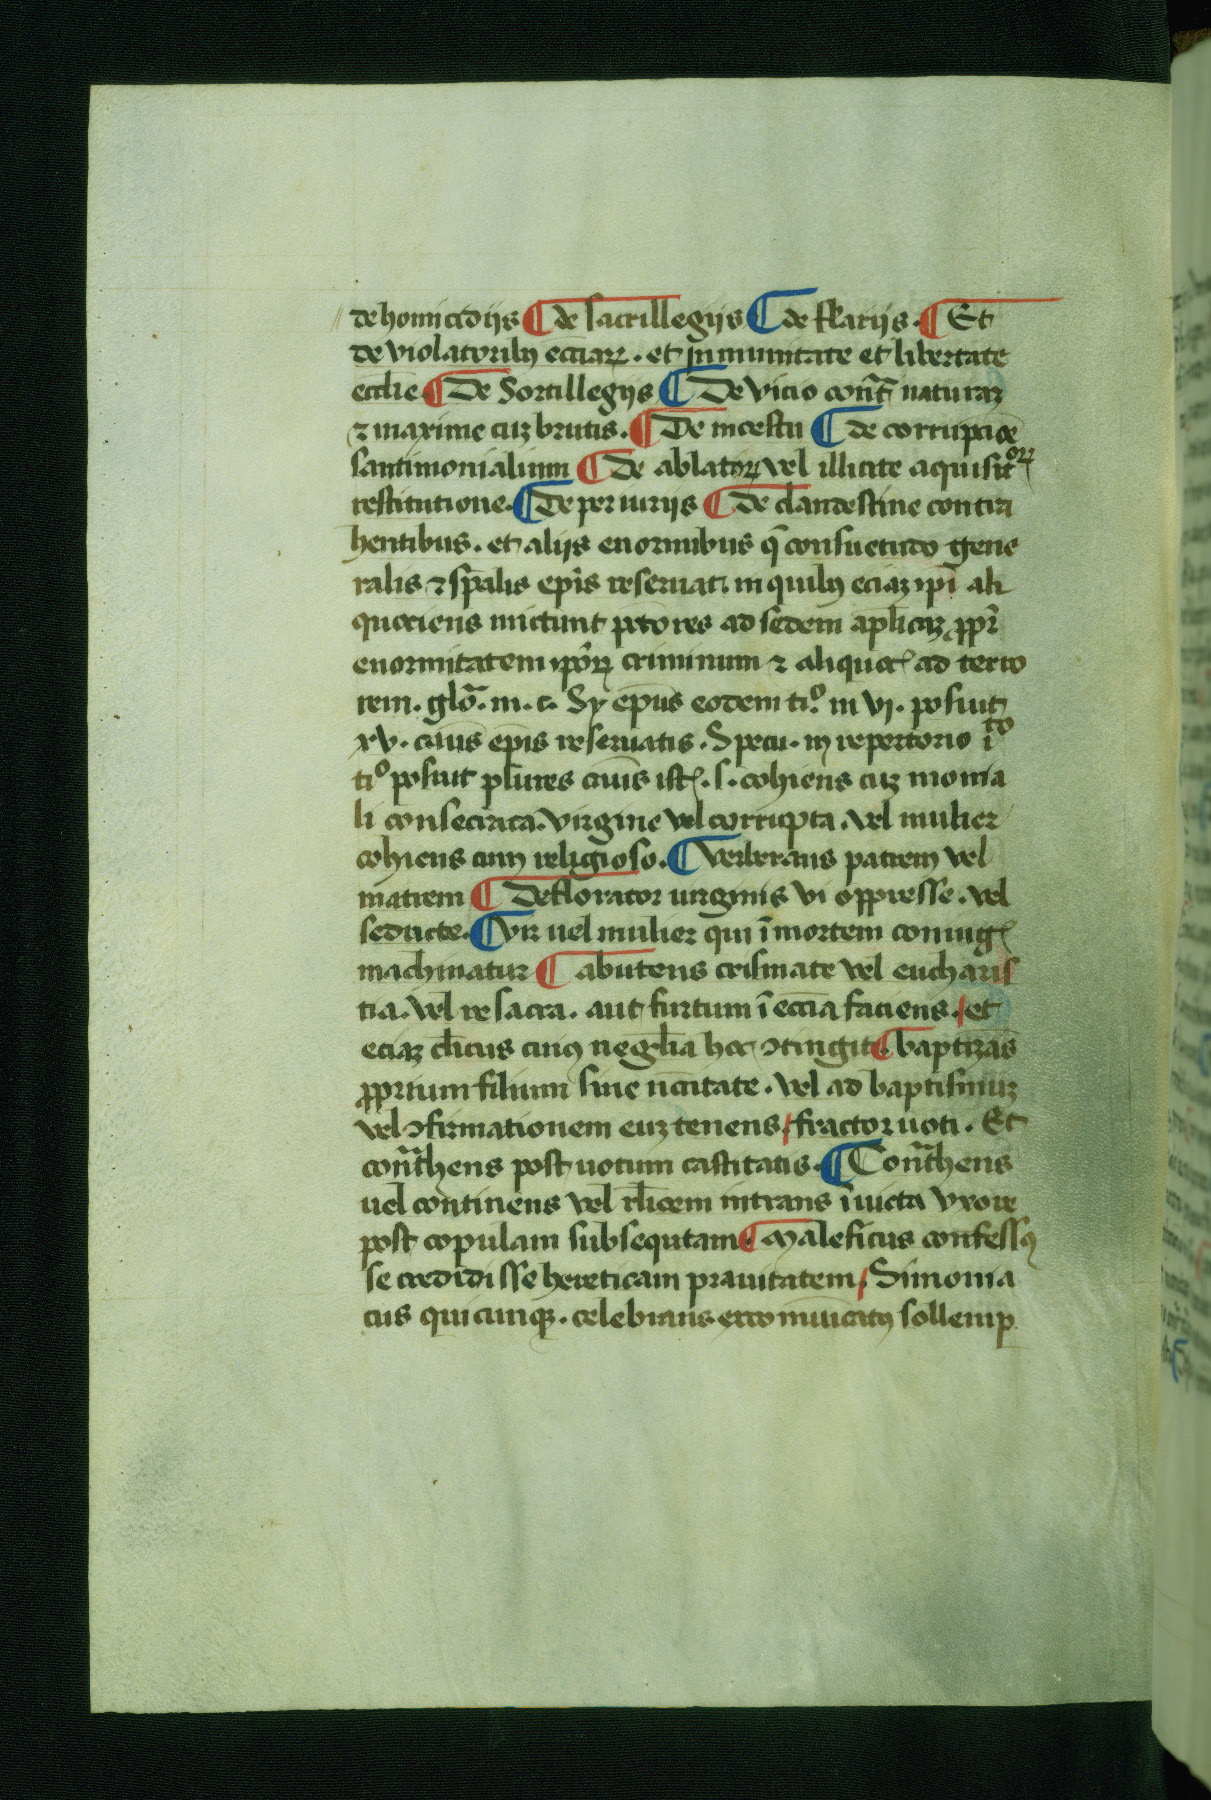 de homicidijs ¶ de sacrillegijs ¶ de ¶ Et
de violatoribꝫ ecciaꝝ . et inmunitate et libertate
ecclie ¶ De Sortillegijs ¶ De vicio contᷓ naturaꝫ
⁊ maxime cuꝫ brutis . ¶ De incestu ¶ de corrupcioē
santimonialium ¶ De ablatoꝝ vel illicite aquisitoꝝ
restitutione . ¶ De periurijs ¶ de clandestine contra
hentibus . et alijs enormibus q̄ consuetudo gene
ralis ⁊ sp̄alis ep̄is reseruat . in quibꝫ eciaꝫ ip̄i ali
quociens mictunt pc̄tores ad sedem ap̄licaꝫ ꝓpꝛ̄
enormitatem ip̄oꝝ criminum ⁊ aliquoc̄ ad terro
rem . gloᷓ . in . c . Sy ep̄us eodem ti.º in vj . posuit
xv . casus ep̄is reseruatis . Specu . in repertorio īto
ti.º posuit plures casus ist̄ . s . cohiens cuꝫ monia
li consecrata . virgine vel corrupta . vel mulier
cohiens cum religioso . ¶ verberans patrem vel
matrem ¶ Deflorator uirginis vi oppresse . vel
seducte . ¶ vir uel mulier qui ī mortem coniugꝭ
machinatur ¶ abutens crismate vel eucharis
tia . vel re sacra . aut furtum ī ecc̄ia faciens . et
eciaꝫ cl̄icus cuiꝰ negl̄ia hoc ꝯtingit ¶ baptizās
ꝓprium filium sine nc̄itate . vel ad baptismuꝫ
vel ꝯfirmationem euꝫ tenens . fractor uoti . Et
conᷓthens post uotum castitatis . ¶ Conᷓthens
uel continens vel rl̄icem intrans īuicta vxore
post copulam subsequtam ¶ Maleficus confessꝰ
se credidisse hereticam prauitatem . Simonia
cus quicunqꝫ . celebrans exco m̄uicatꝰ sollemp